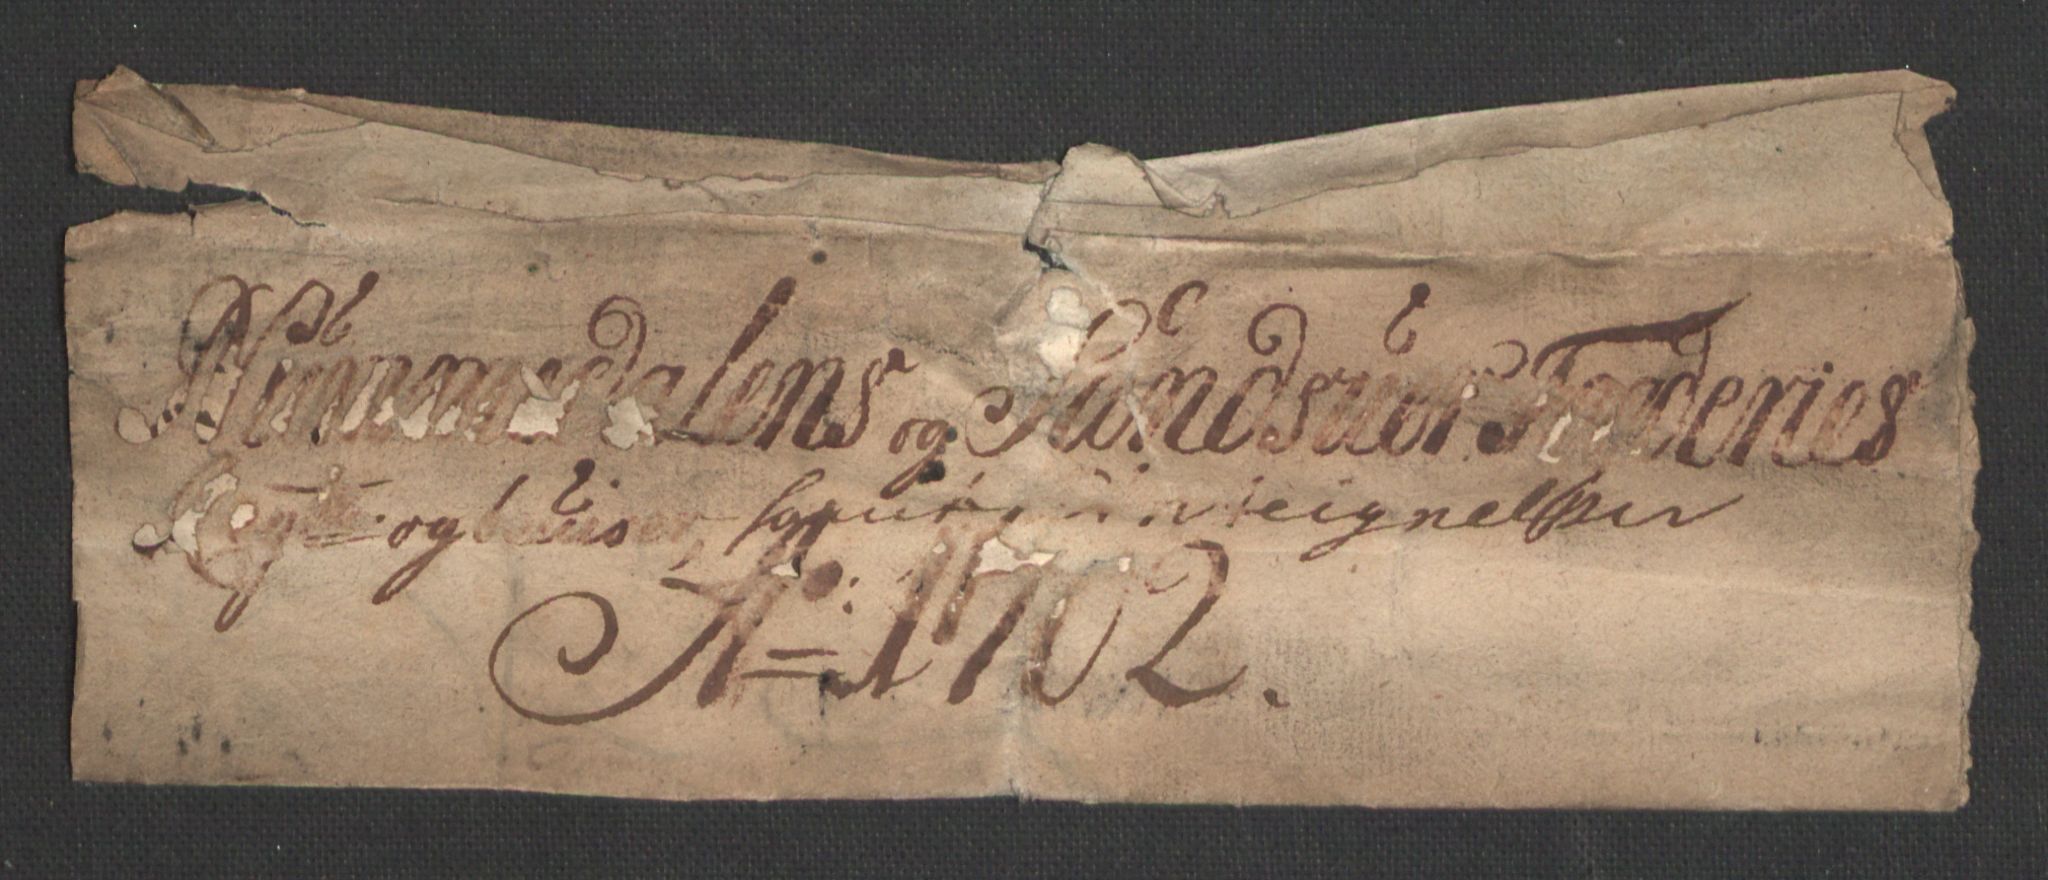 Nummedalens og Sandsuër Fogderies
Regnsk: og beuiser, samt Anteignelser
A:o 1702.